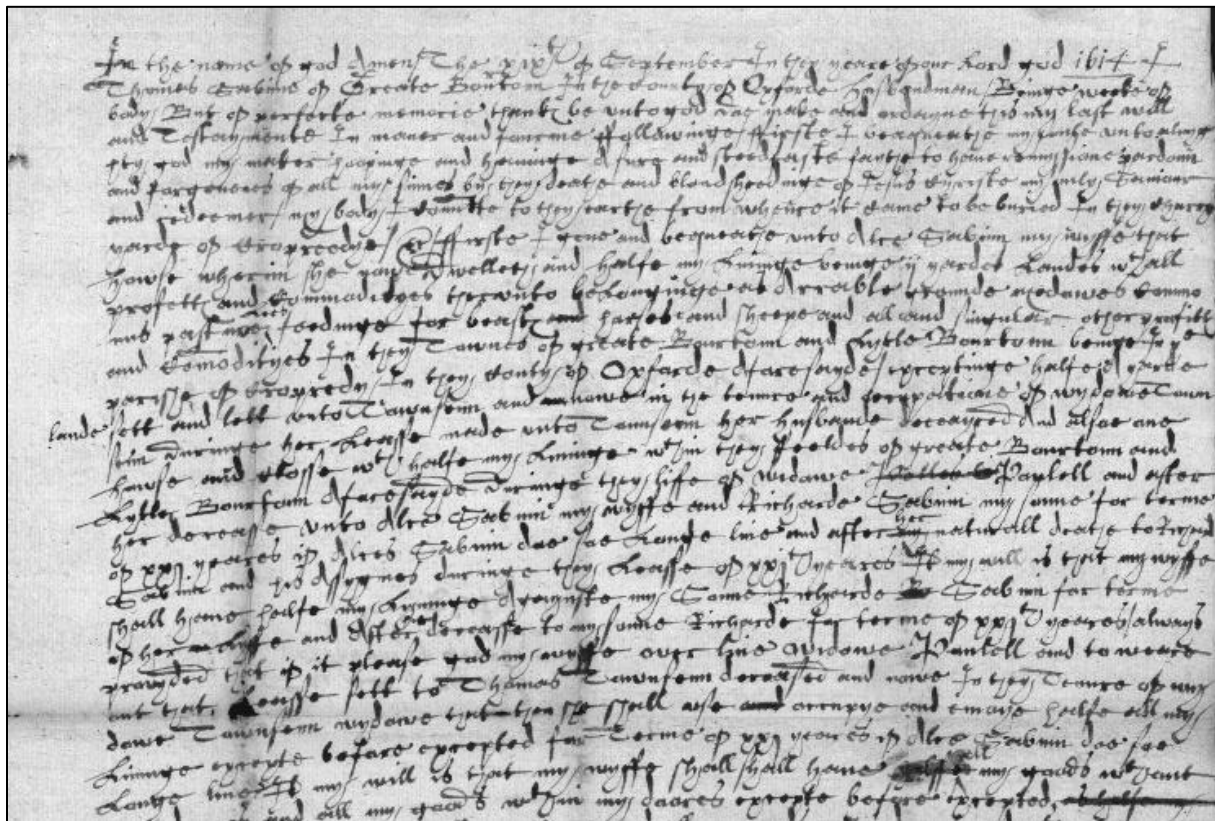 In the name of god Amen The xixth of September In they yeare of our Lord god 1614 I
Thomes Sabinne of Greate Bourtom In the County of Oxforde husbandman Beinge weeke of
body But of perfecte memorie thankes be unto god doe make and ordayne this my last will
and Testaymente In maner and fourme ffollowinge ffirste I beaqueathe my soule unto almig
hty god my maker hoopinge and haminge A sure and steedfaste faythe to have remissione pardoun
and forgevenes of all my sinnes by they deathe and bloudsheedinge of Jesus Chryste my only Saviour
and redeemer my body I comitte to they earthe from whence it came to be buried In they Church
yarde of Cropreedye ffirste I geve and beaqueathe unto Alce Sabinn my wyffe that
howse wherin she nowe Dwelleth and halfe my Livinge beinge ij yardes Landes wth all
profetts and Commodityes therunto belonginge as Arrable grounde medowes Commo
ns pastures leas feedinge for beasts horses and sheepe and all and singular other profitts
and Comodityes In they Townes of greate Bourtonn and Lytle Bourtonn beinge In ye
parisshe of Cropredy In they County of Oxforde Aforesayde exceptinge halfe A yarde
lande sett and lett unto Townsenn and nowe in the tenure and occupatione of wydowe Town
senn duringe her Leasse made unto Townsenn her husbande deceaysed And allsoe one
howse and Closse wth halfe my Livinge wthin they feeldes of greate Bourtonn and
Lytle Bourtonn Aforesayde duringe they life of widowe Pantell and after
her decease unto Alce Sabinn my wyffe and Richarde Sabinn my sonne for terme
of xxj yeares if Alces Sabinn doe soe longe live and after her naturall deathe to Richard
Sabinn and his Asygnes duringe they Leasse of xxj yeares It my will is that my wyffe
shall have halfe my Livinge Agaynste my Sonne Richarde Sabinn for terme
of her lyffe and After her deceasse to my sonne Richarde for terme of xxj yeares always
provyded that if it please god my wyffe over live widowe Pantell and to weare
out that Leasse sett to Thomas Townsenn deceased and nowe In they Tenure of wy
dowe Townsenn wydowe that then she shall use and occupye and enioye halfe all my
Livinge excepte before excepted for Terme of xxj yeares if Alce Sabinn doe soe
Longe live It my will is that my wyffe shall shall have all my goods wthout
and all my goods wthin my doores excepte before excepted